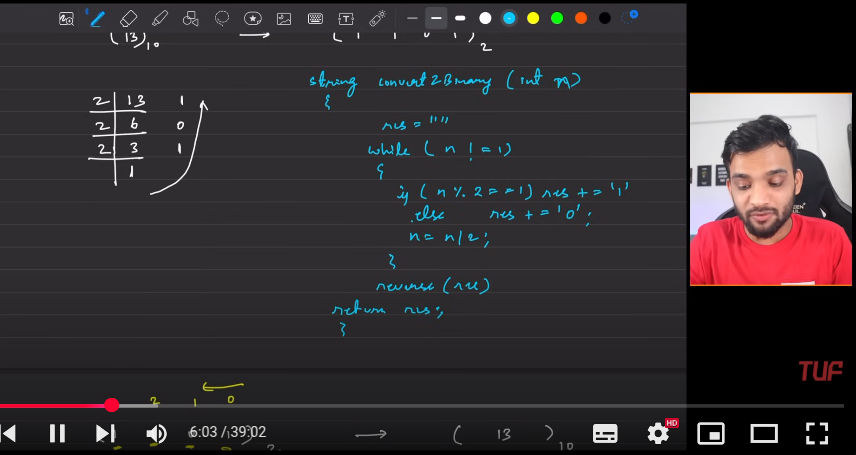 (13)10
( 1 1 0 1 )2
2 13 1
2 6 0
2 3 1
1
string convert2Binary (int n)
{
res = ""
while ( n ! = 1)
{
if ( n % 2 = = 1) res + = '1'
else res + = '0' ;
n = n/2 ;
}
reverse (res)
return res ;
}
TUF
2 1 0
6:03 / 39:02
HD
( 13 )10